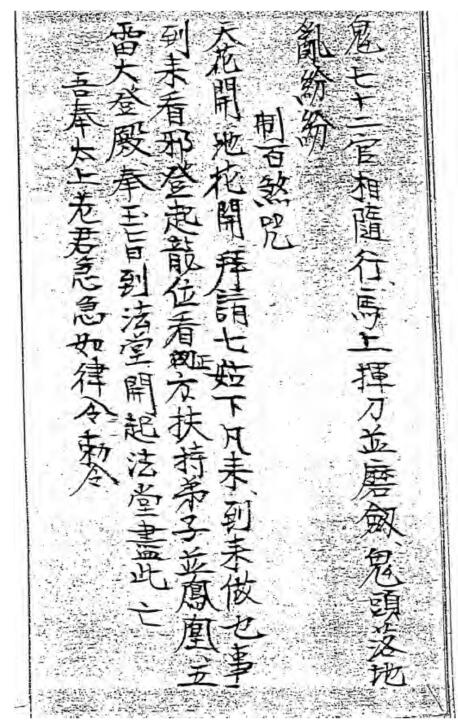 鬼、七十二官相隨行、馬上揮刀並磨劔、鬼頭落地
亂紛紛
制百煞咒
天花開地花開拜請七姑下凡耒、到耒做乜事
到耒看邪登起龍位看正方扶持弟子並鳳凰五
雷大登殿奉玉旨到法堂開起法堂盡此亡
吾奉太上老君急急如律令勅令